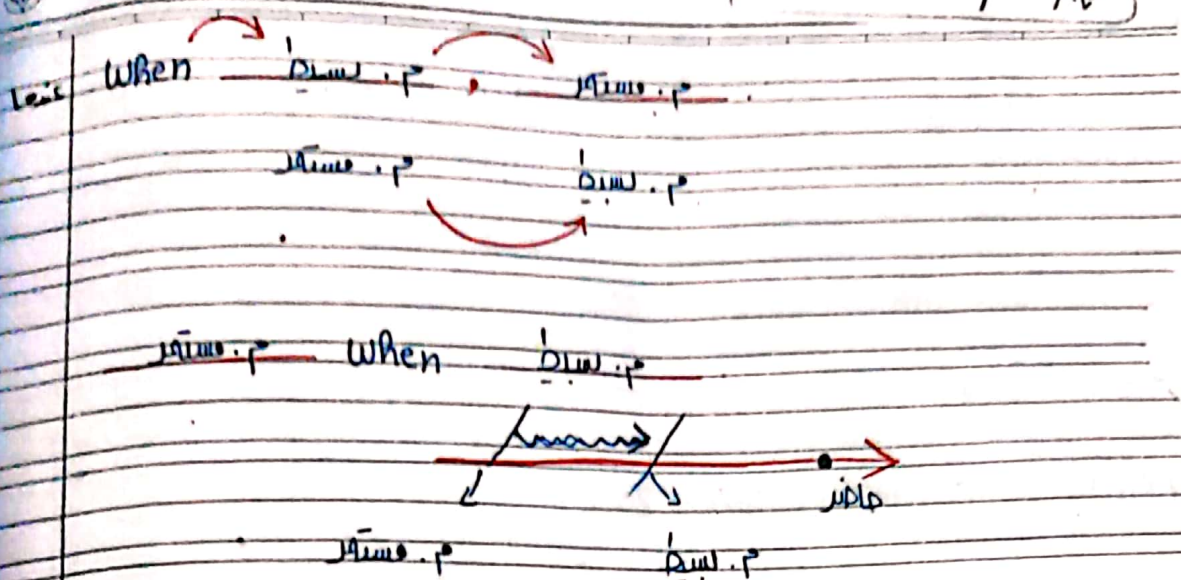 عندما When م. بسيط , م. مستمر .
م. مستمر م. بسيط
م. مستمر When م. بسيط
حاضر
م. مستمر م. بسيط